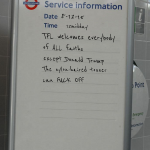 Service information
Date 8-12-15
Time
TFL welcomes everybody
of all Faiths
except Donald Trump
The nylon haired
can FUCK OFF
Point